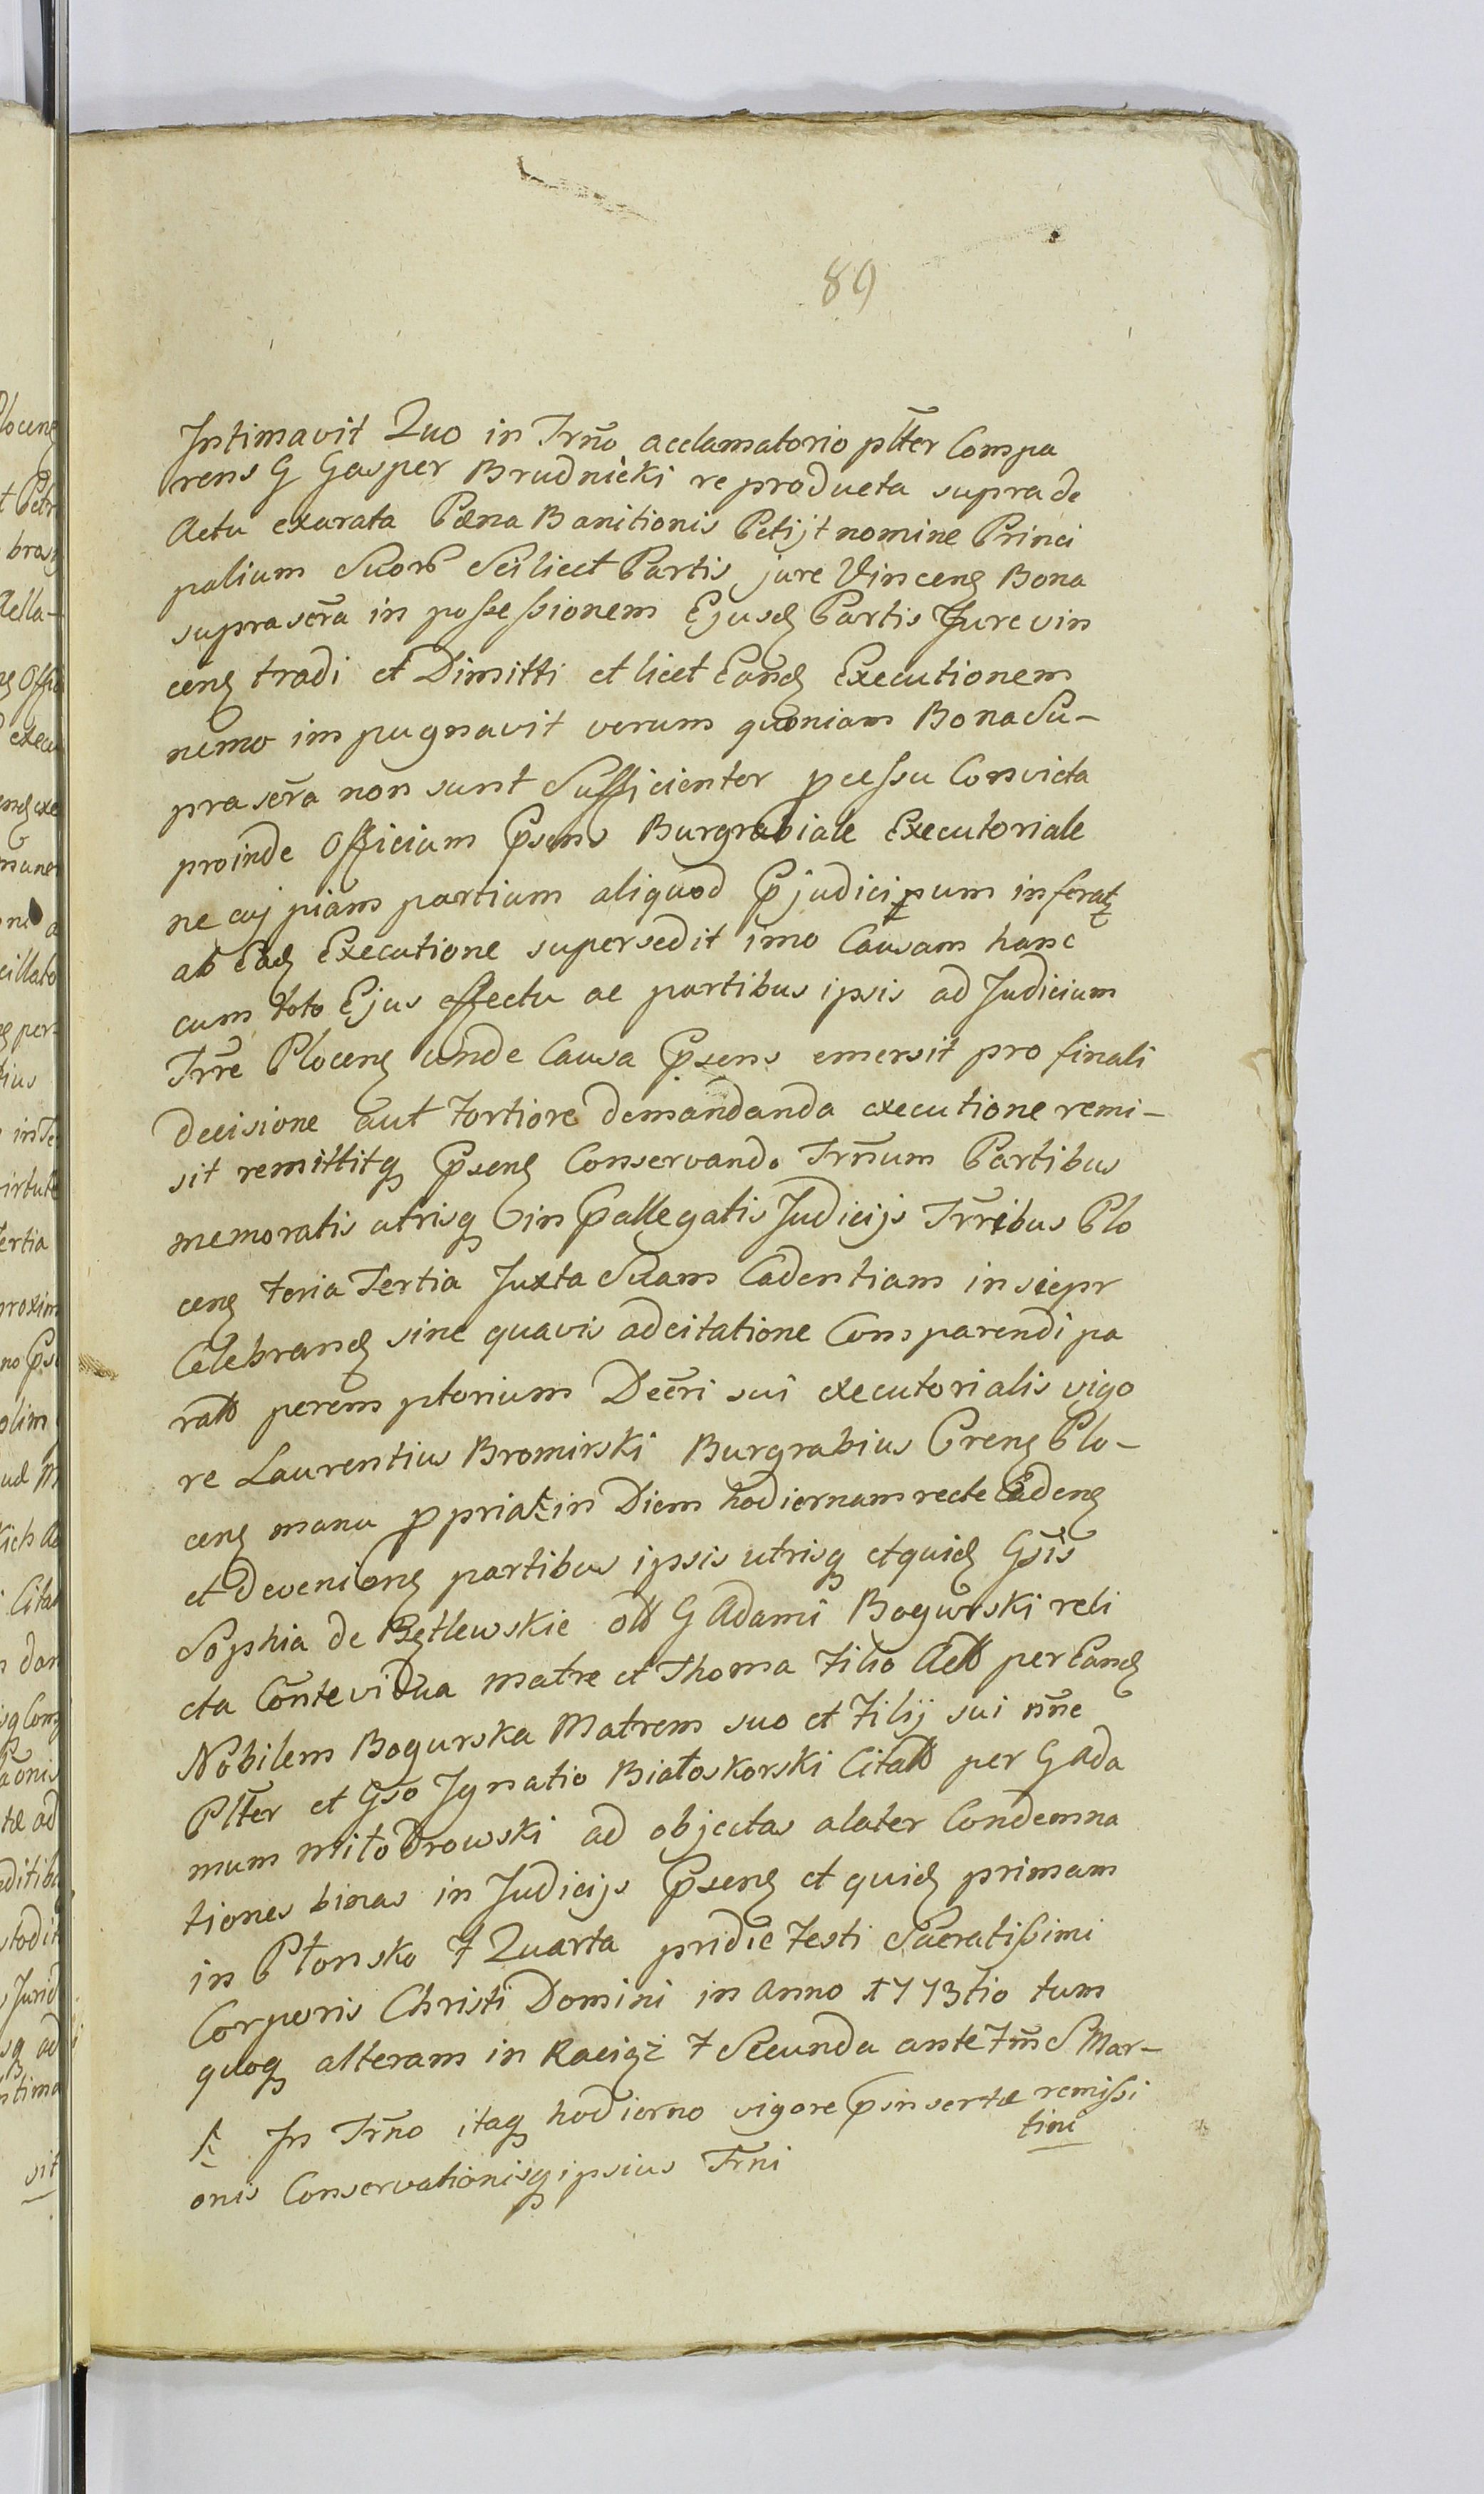 89
Intimavit Quo in Trno acclamatorio pltter Compa
rens G Gasper Brudnicki reproducta supra de
Actu exarata Pæna Banitionis Petijt nomine Princi
palium Suorb Scilicet Partis jure Vinceng Bona
supra scra in possessionem Ejusdg Partis Jure vin
ceng tradi et Dimitti et licet Eandg Executionem
nemo impugnavit verum quoniam Bona Su-
pra scra non sunt Sufficienter pcessu Convicta
proinde Officium Psens Burgrabiale Executoriale
ne cuj piam partium aliquod Pjudicium inferat
ab Eadg Executione supersedit imo Causam hanc
cum toto Ejus effectu ac partibus ipsis ad Judicium
Trre Ploceng unde Causa Psens emersit pro finali
Decisione aut fortiore demandanda executione remi-
sit remittitq Pseng Conservando Trnum Partibus
memoratis utrisq in Pallegatis Judicijs Trribus Plo
ceng feria Tertia Juxta Suam Cadentiam in siepr
Celebrandg sine quavis adcitatione Comparendi pa
ratb peremptorium Decri sui executorialis vigo
re Laurentius Bromirski Burgrabius Creng Plo-
ceng manu ppria in Diem hodiernam recte Cadeng
et deveniong partibus ipsis utrisq et quidg Gsis
Sophia de Bętlewskie olb G Adami Bogurski reli
cta Conte vidua matre et Thoma filio Actb per Eandg
Nobilem Bogurska Matrem suo et filij sui nne
Pltter et Gso Ignatio Białoskorski Citatb per G Ada
mum Miłodrowski ad objectas alater Condemna
tiones binas in Judicijs Pseng et quidg primam
in Płonsko f Quarta pridie festi Sacratissimi
Corporis Christi Domini in Anno 1773tio tum
quoq alteram in Raciąż f Secunda ante fm S Mar-
tini
In Trno itaq hodierno vigore Pinsertæ remissi
onis Conservationisq ipsius Trni